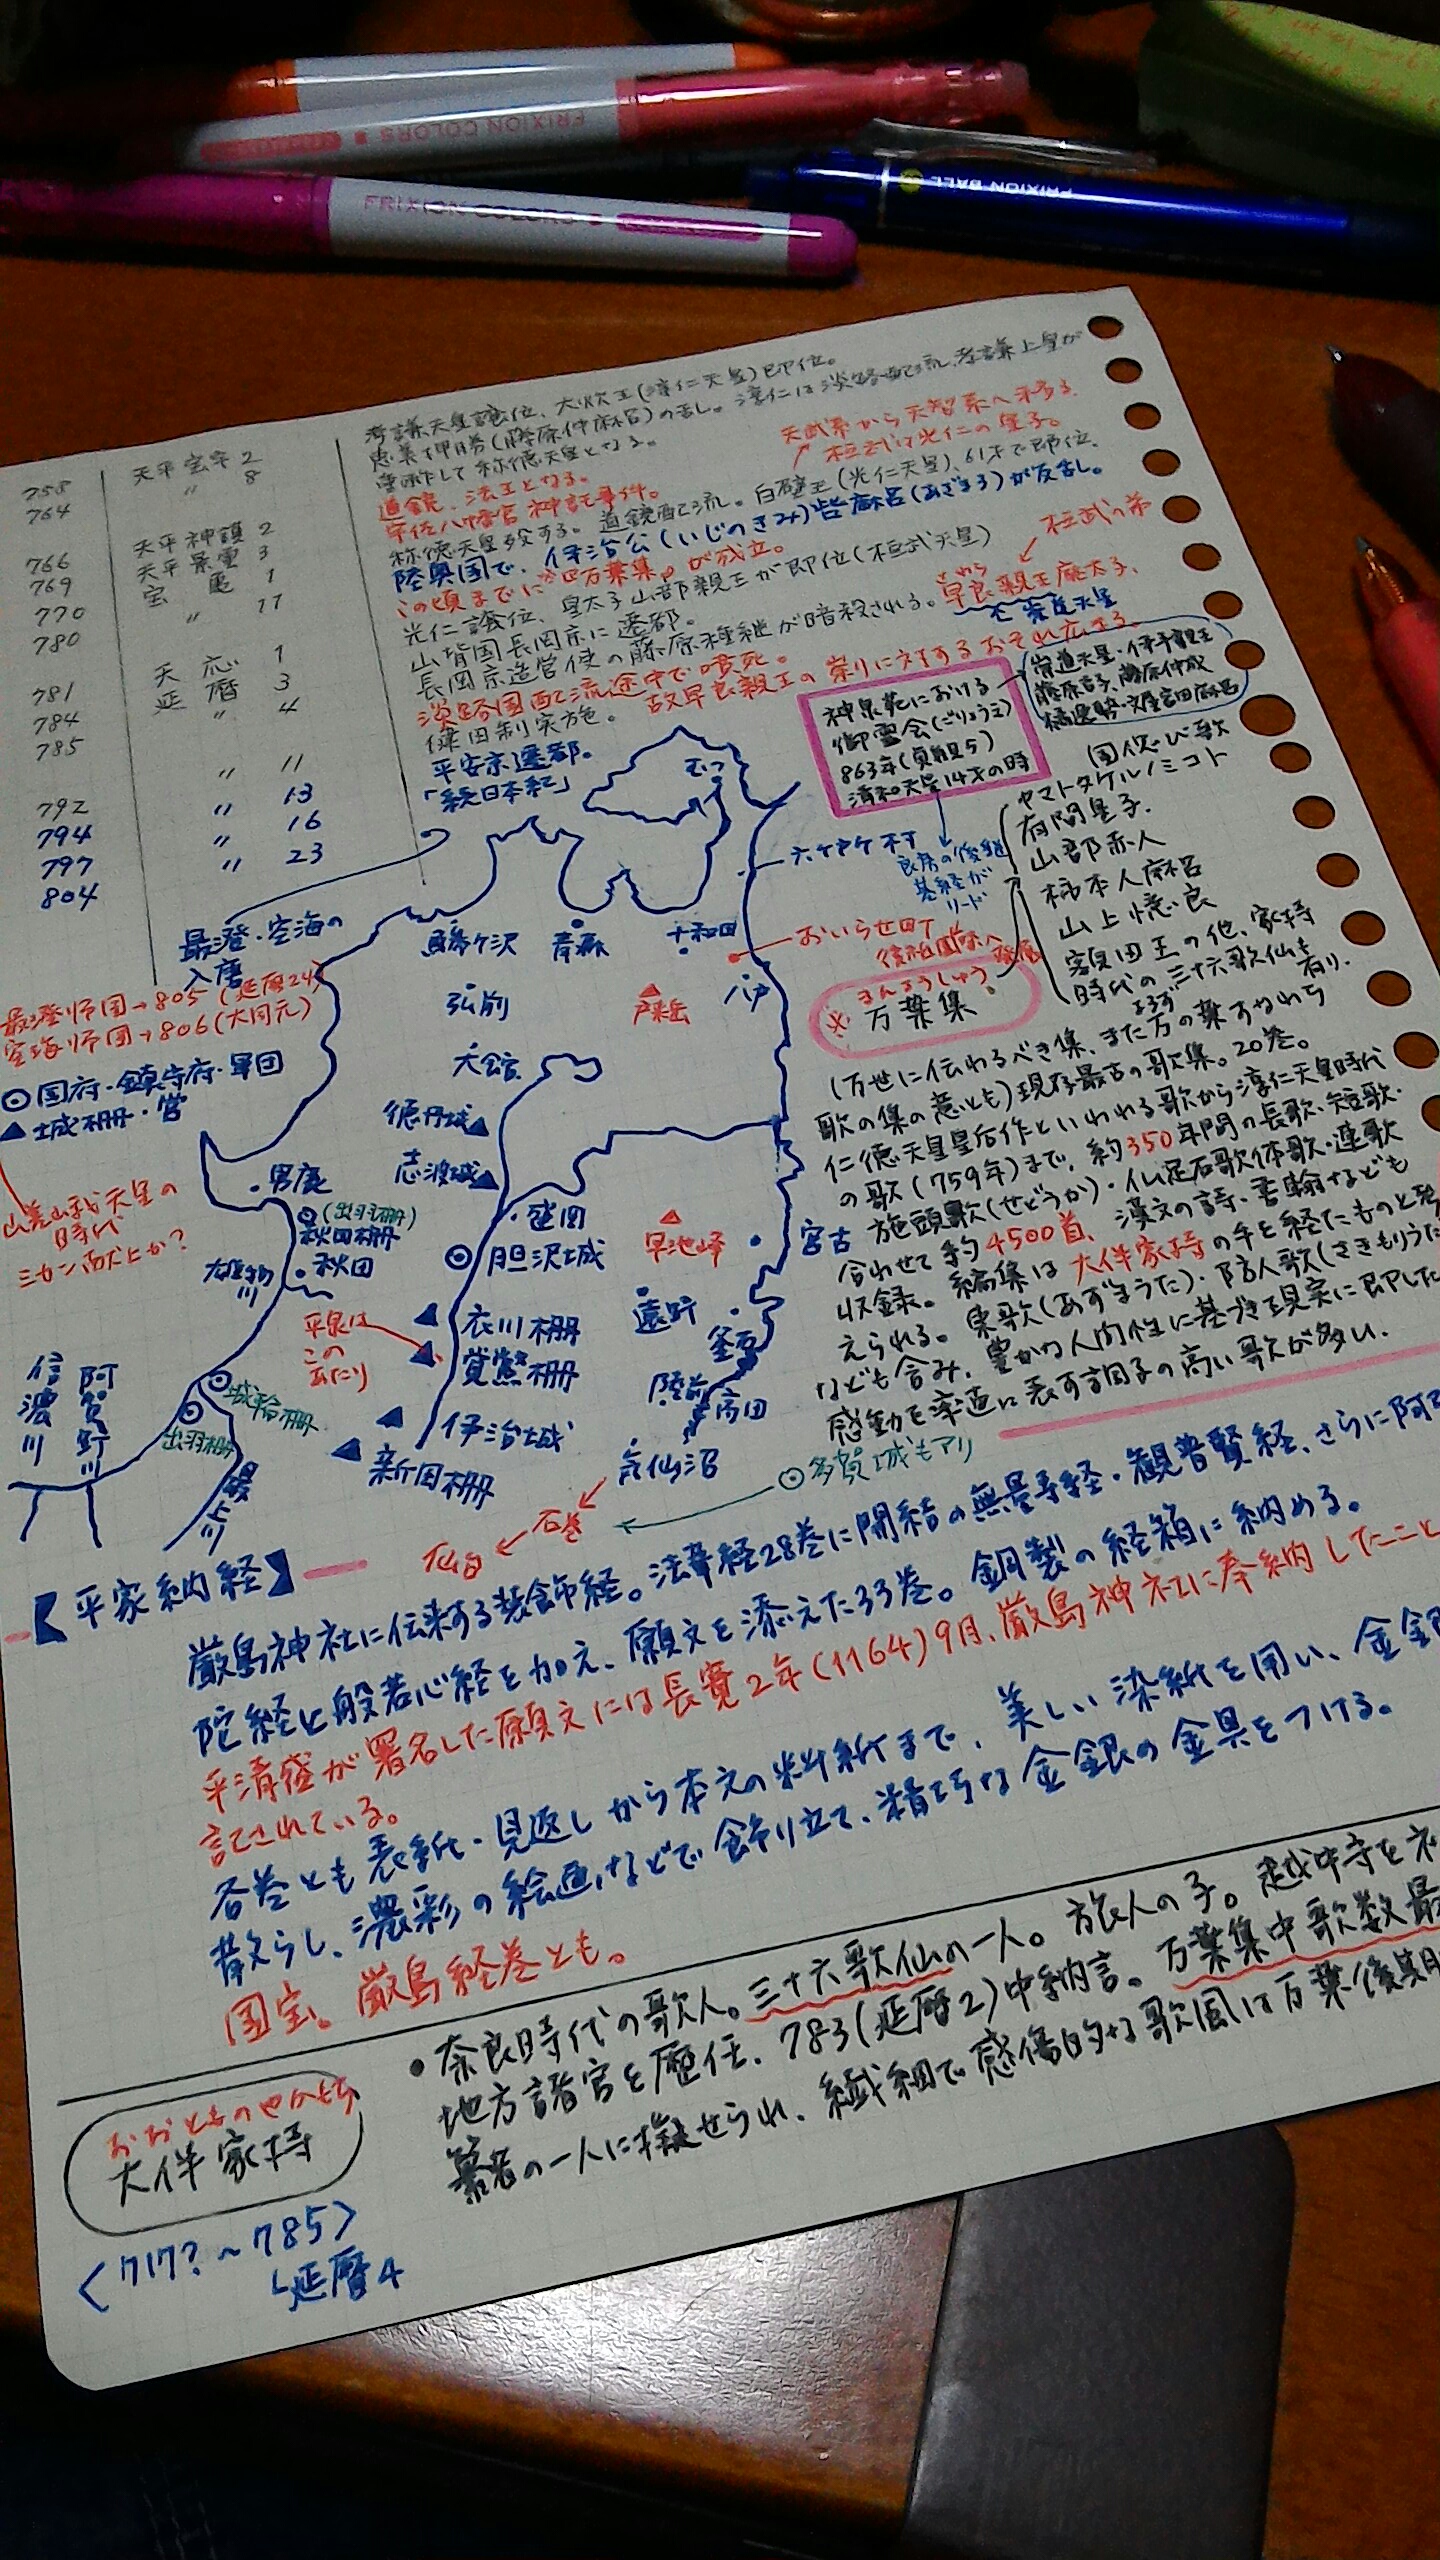 FRIXION COLORS
FRIXION COLORS
FRIXION BALL
758 天平宝字 2
764 〃 8
766 天平神護 2
769 天平景雲 3
770 宝亀 1
780 〃 11
781 天応 1
784 延暦 3
785 〃 4
792 〃 11
794 〃 13
797 〃 16
804 〃 23
孝謙天皇譲位、大炊王(淳仁天皇)即位。
恵美押勝(藤原仲麻呂)の乱。淳仁は淡路配流、孝謙上皇が
重祚して称徳天皇となる。
道鏡、法王となる。
宇佐八幡宮神託事件。
称徳天皇歿する。道鏡配流。白壁王(光仁天皇)、61才で即位。
天武系から天智系へ移る。
桓武は光仁の皇子。
陸奥国で、伊治公(いじのきみ)呰麻呂(あざまろ)が反乱。
この頃までに※『万葉集』が成立。
光仁譲位、皇太子山部親王が即位(桓武天皇)
桓武の弟
山背国長岡京に遷都。
長岡京造営使の藤原種継が暗殺される。早良親王廃太子、
さわら
崇道天皇
淡路国配流途中で憤死。
故早良親王の祟りに対するおそれ広まる。
健田制実施。
平安京遷都。
「続日本紀」
神泉苑における
御霊会(ごりょうえ)
863年(貞観5)
清和天皇14才の時
崇道天皇・伊予親王
藤原吉子、藤原仲成
橘逸勢・文屋宮田麻呂
良房の後継
基経が
リード
最澄・空海の
入唐
最澄帰国→805(延暦24)
空海帰国→806(大同元)
◎国府・鎮守府・軍団
▲城柵・営
山美山武天皇の
時代
むつ
六ケ所村
鰺ケ沢
青森
十和田
おいらせ町
八戸
弘前
大館
徳丹城
志波城
男鹿
(出羽柵)
秋田柵
秋田
雄物川
盛岡
胆沢城
早池峰
宮古
平泉は
この
あたり
衣川柵
覚鱉柵
遠野
釜石
陸前高田
伊治城
新田柵
気仙沼
◎多賀城もアリ
石巻
仙台
信濃川
阿賀野川
城輪柵
出羽柵
最上川
国偲び歌
ヤマトタケルノミコト
有間皇子
山部赤人
柿本人麻呂
山上憶良
額田王の他、家持
時代の三十六歌仙も有り。
まんようしゅう
※万葉集
よろず
(万世に伝わるべき集、また万の葉すなわち
歌の集の意とも)現存最古の歌集。20巻。
仁徳天皇皇后作といわれる歌から淳仁天皇時代
の歌(759年)まで、約350年間の長歌・短歌・
施頭歌(せどうか)・仏足石歌体歌・連歌
合わせて約4500首、漢文の詩・書翰なども
収録。編集は大伴家持の手を経たものと考
えられる。東歌(あずまうた)・防人歌(さきもりうた
なども含み、豊かな人間性に基づき現実に即した
感動を率直に表す調子の高い歌が多い。
【平家納経】
厳島神社に伝来する装飾経。法華経28巻に開結の無量寿経・観普賢経、さらに阿弥
陀経と般若心経を加え、願文を添えた33巻。金銅製の経箱に納める。
平清盛が署名した願文には長寛2年(1164)9月、厳島神社に奉納したこと
記されている。
各巻とも表紙・見返しから本文の料紙まで、美しい染紙を用い、金銀
散らし、濃彩の絵画などで飾り立て、精巧な金銀の金具をつける。
国宝。厳島経巻とも。
おおとものやかもち
大伴家持
<717?~785>
延暦4
・奈良時代の歌人。三十六歌仙の一人。旅人の子。越中守をネ
地方諸官を歴任、783(延暦2)中納言。万葉集中歌数最
纂者の一人に擬せられ、繊細で感傷的な歌風は万葉後期